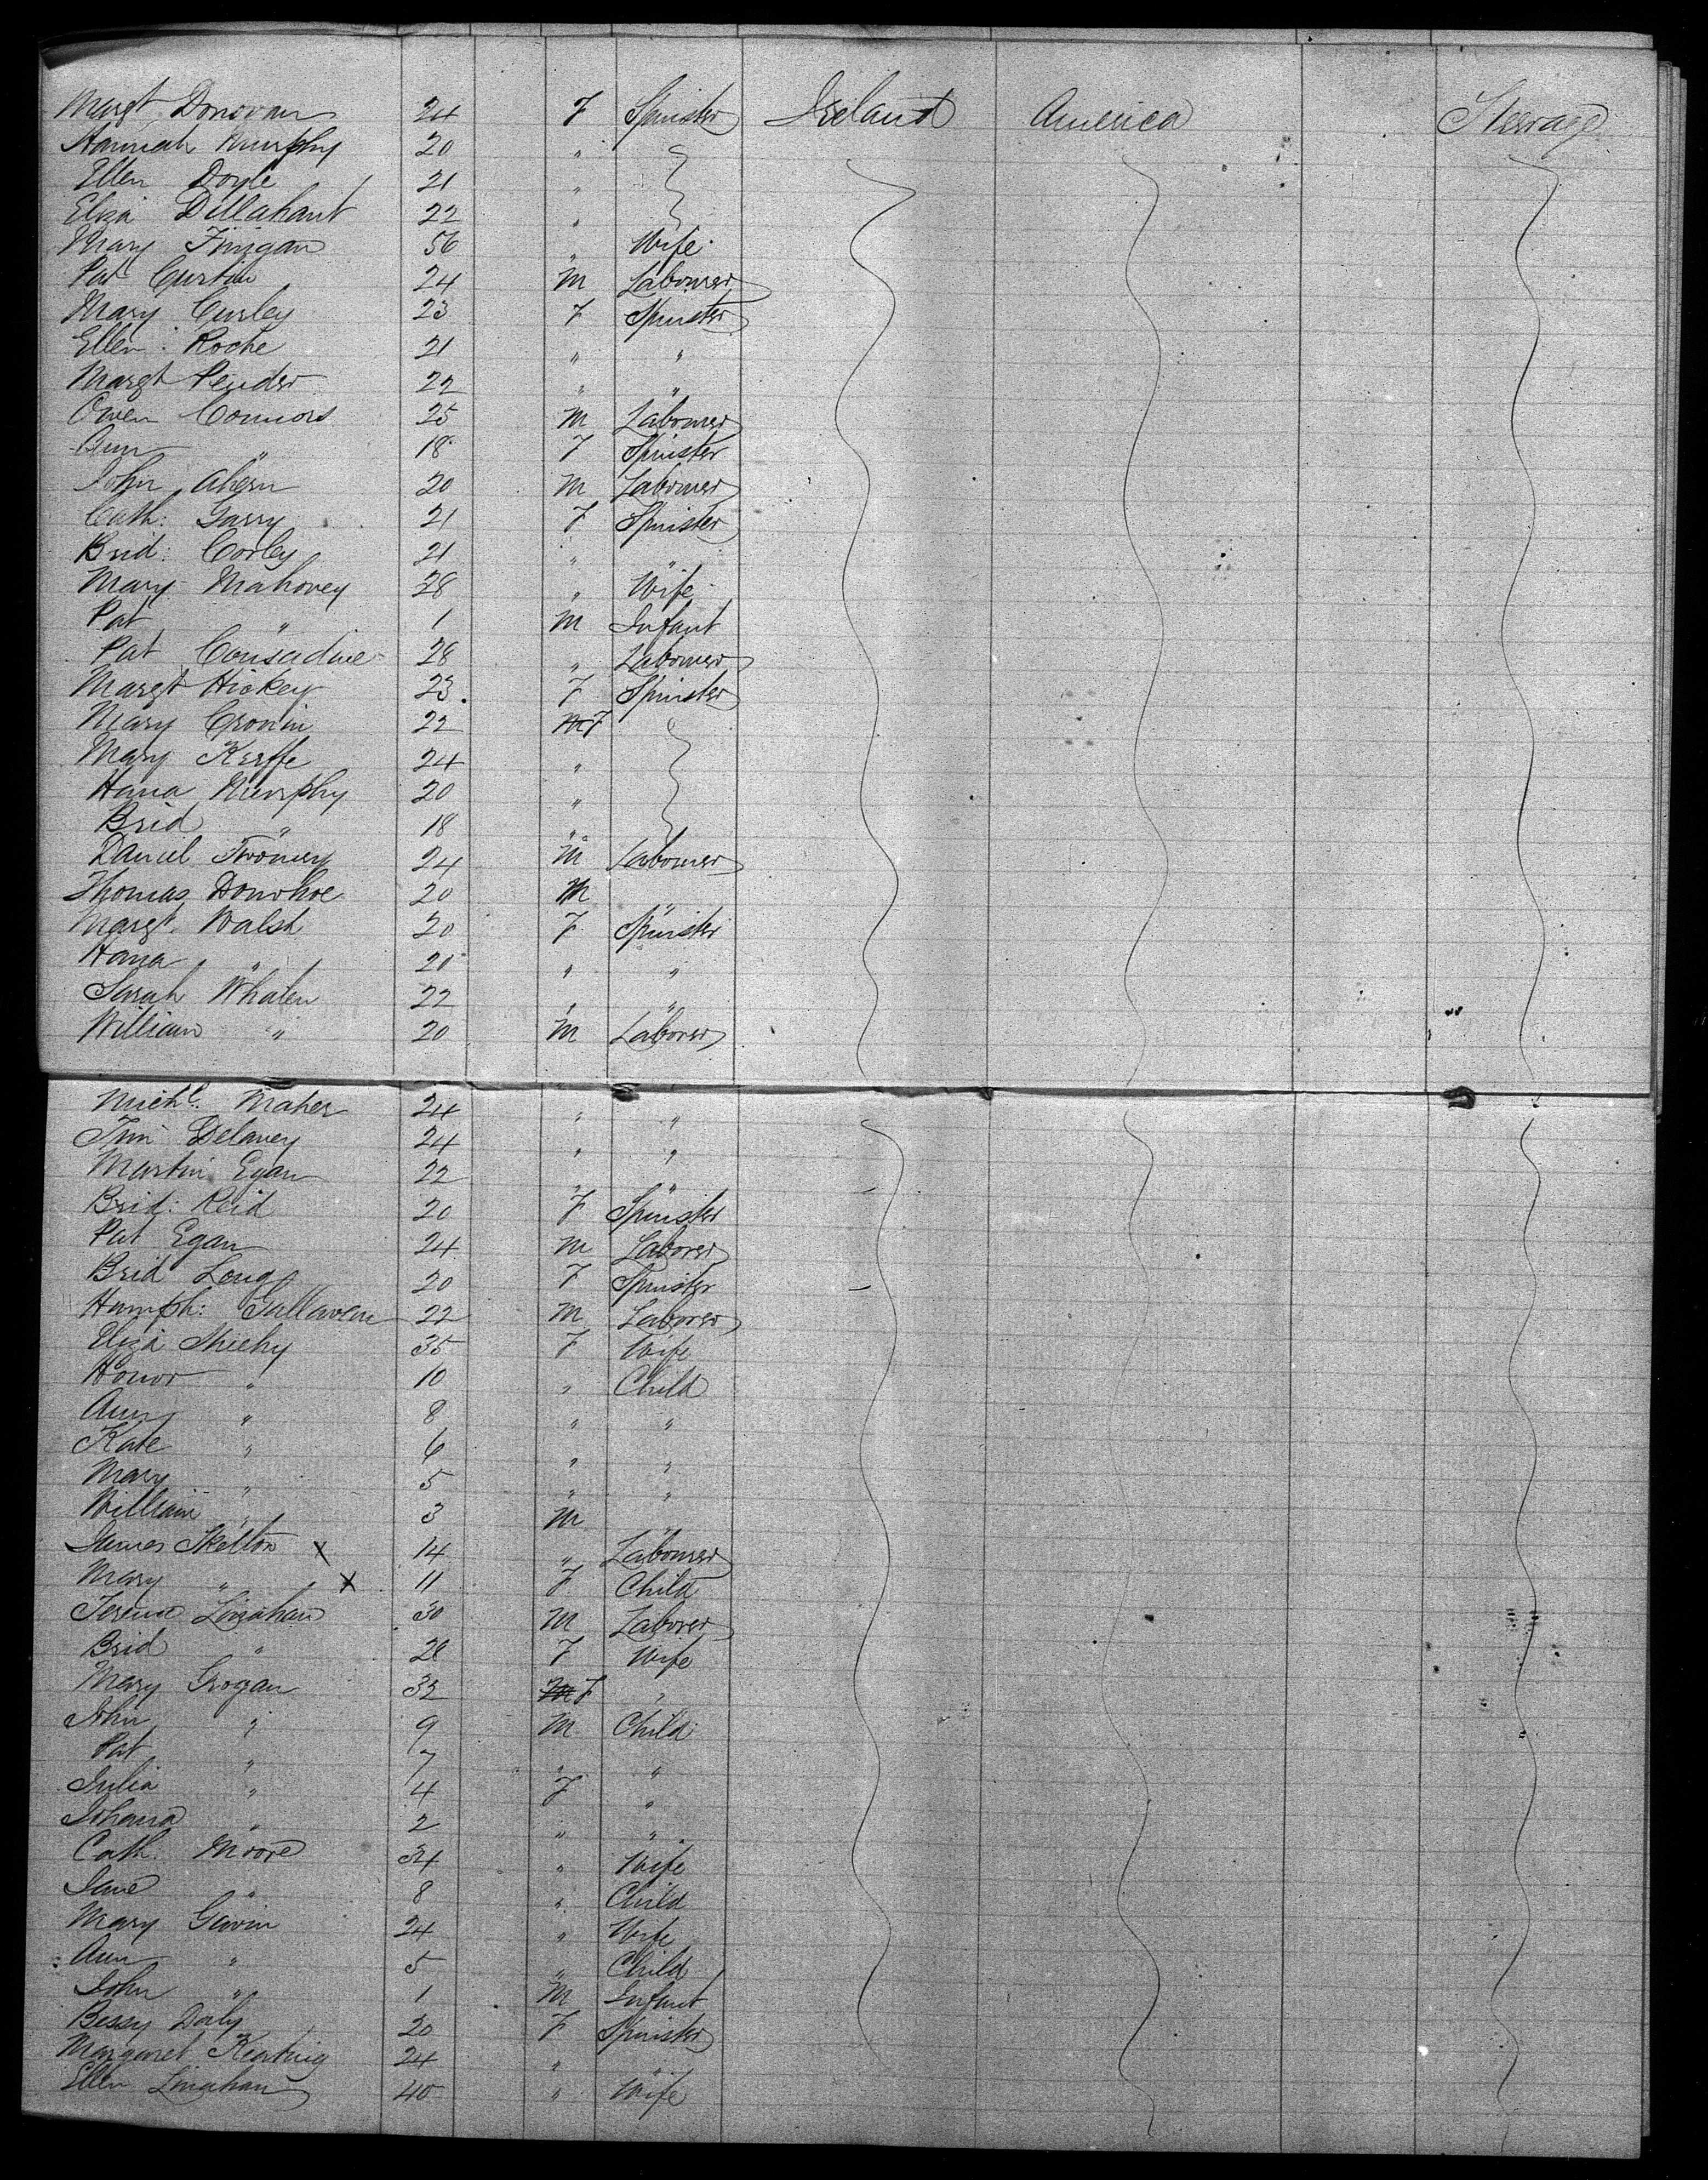 Margt Donovan 24 F Spinster Ireland America Steerage
Hannah Murphy 20 "
Ellen Doyle 21 "
Eliza Dillahant 22 "
Mary Finigan 56 " Wife
Pat Curtin 24 M Labourer
Mary Curley 23 F Spinster
Ellen Roche 21 " "
Margt Pender 22 " "
Owen Connors 25 M Labourer
Ann " 18 F Spinster
John Ahern 20 M Labourer
Cath: Garry 21 F Spinster
Brid: Corley 21 " "
Mary Mahoney 28 " Wife
Pat " 1 M Infant
Pat Considine 28 " Labourer
Margt Hickey 23 F Spinster
Mary Cronin 22 M F
Mary Kerffe 24 "
Hana Murphy 20 "
Brid " 18 "
Daniel Twomey 24 M Labourer
Thomas Donohoe 20 M "
Margt. Walsh 20 F Spinster
Hana " 20 " "
Sarah Whalen 22 " "
William " 20 M Laborer
Michl. Maher 24 " "
Tim Delaney 24 " "
Martin Egan 22 " "
Brid: Reid 20 F Spinster
Pat Egan 24 M Laborer
Brid Long 20 F Spinster
Humph: Gullavan 22 M Laborer
Eliza Sheehy 35 F Wife
Honor " 10 " Child
Ann " 8 " "
Kate " 6 " "
Mary " 5 " "
William " 3 M "
James Skelton X 14 " Labourer
Mary " X 11 F Child
Terence Linahan 30 M Laborer
Brid " 28 F Wife
Mary Grogan 32 M F "
John " 9 M Child
Pat " 7 " "
Julia " 4 F "
Johana " 2 " "
Cath. Moore 34 " Wife
Jane " 8 " Child
Mary Gavin 24 " Wife
Ann " 5 " Child
John " 1 M Infant
Bessy Daly 20 F Spinster
Margaret Keating 24 " "
Ellen Linahan 40 " Wife